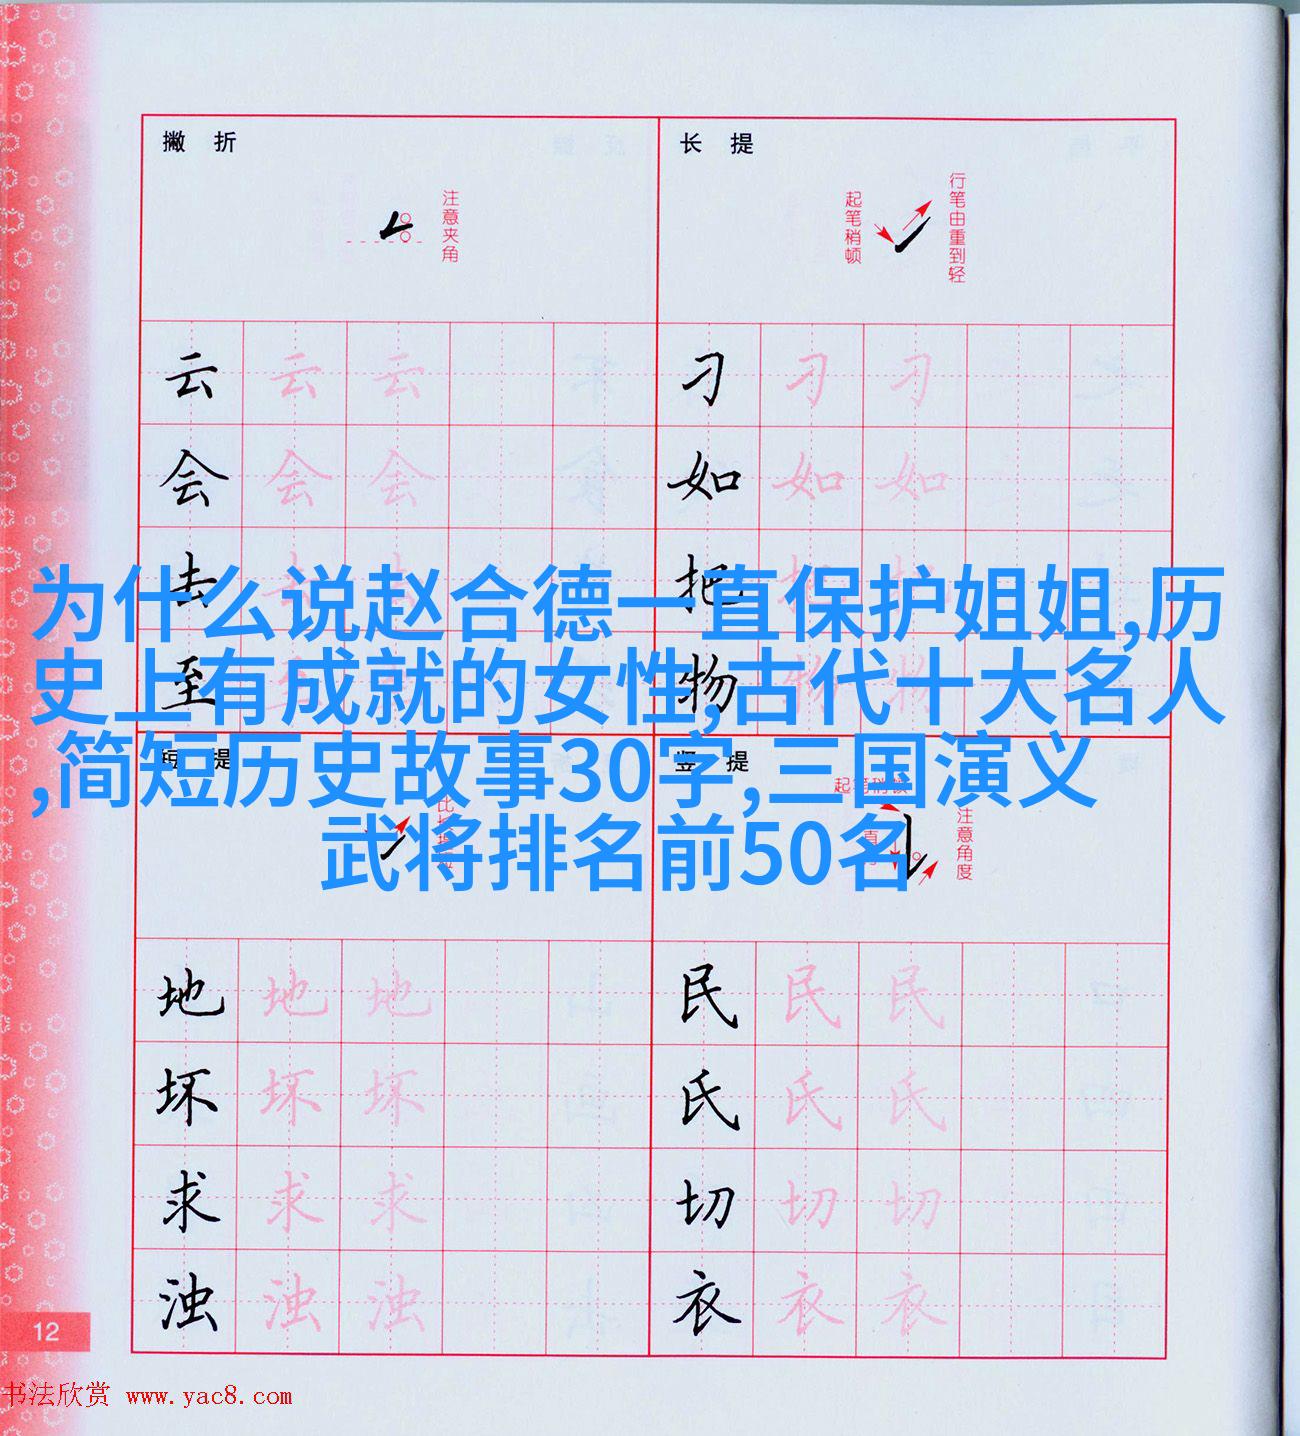 撇 折
注意夹角
长 提
起笔稍顿
行笔由重到轻
云 云 云
会 会 会
去 去 去
至 至 至
刁 刁 刁
如 如 如
把 把 把
物 物 物
为什么说赵合德一直保护姐姐,历
史上有成就的女性,古代十大名人
,简短历史故事30字,三国演义
武将排名前50名
短 提
竖 提
起笔稍顿
注意角度
地 地 地
坏 坏 坏
求 求 求
浊 浊 浊
民 民 民
氏 氏 氏
切 切 切
衣 衣 衣
12
书法欣赏 www.yac8.com